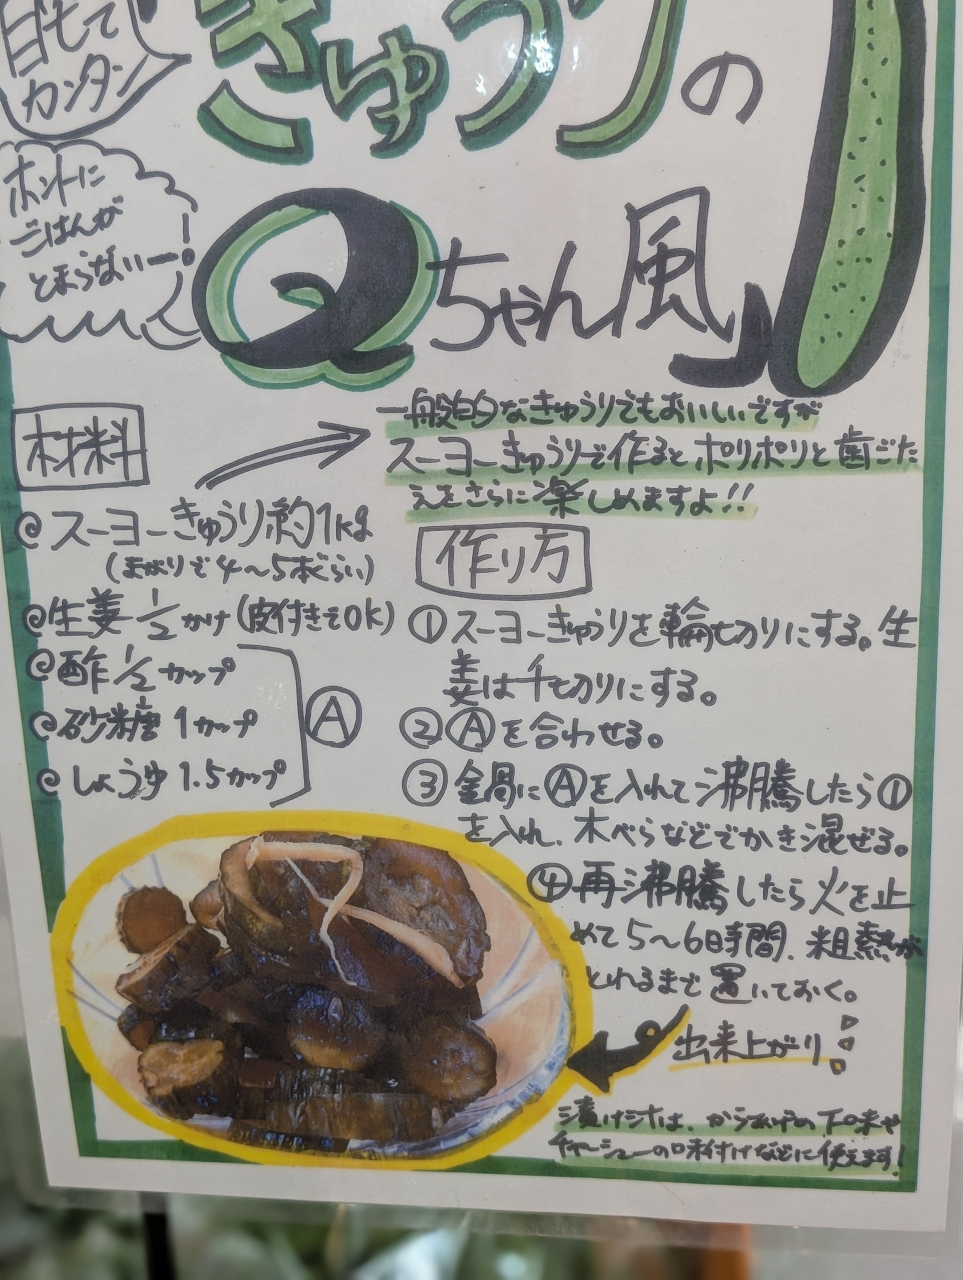 目もて
カンタン
きゅうりの
ホントに
ごはんが
とまらないー!
Qちゃん風」
材料
一般的なきゅうりでもおいしいですが
スーヨーきゅうりで作るとポリポリと歯ごた
えをさらに楽しめますよ!!
@スーヨーきゅうり約1kg
(まがりで4〜5本ぐらい)
@生姜1/2かけ(皮付きでOK)
@酢1/2カップ
@砂糖1カップ
@しょうゆ1.5カップ
Ⓐ
作り方
①スーヨーきゅうりを輪切りにする。生
姜は千切りにする。
②Ⓐを合わせる。
③金鍋にⒶを入れて沸騰したら①
を入れ、木べらなどでかき混ぜる。
④再沸騰したら火を止
めて5〜6時間、粗熱が
とれるまで置いておく。
出来上がり!
漬け汁は、からあげの下味や
チャーシューの味付けなどに使えます!